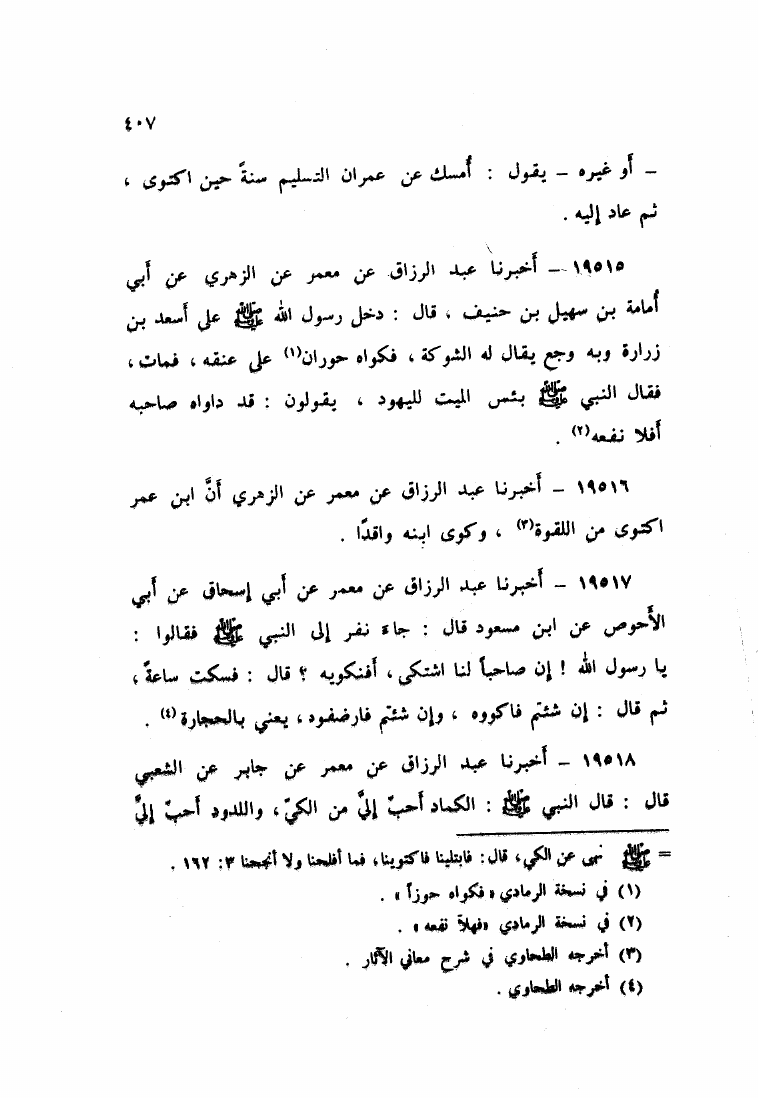 ٤٠٧
ـ أَو غيره ـ يقول : أُمسك عن عمران التسليم سنةً حين اكتوى ،
ثم عاد إليه .
١٩٥١٥ ـ أَخبرنا عبد الرزاق عن معمر عن الزهري عن أَبي
أُمامة بن سهيل بن حنيف ، قال : دخل رسول الله ﷺ على أَسعد بن
زرارة وبه وجع يقال له الشوكة ، فكواه حوران(١) على عنقه ، فمات ،
فقال النبي ﷺ بئس الميت لليهود ، يقولون : قد داواه صاحبه
أَفلا نفعه(٢) .
١٩٥١٦ ـ أَخبرنا عبد الرزاق عن معمر عن الزهري أَنَّ ابن عمر
اكتوى من اللقوة(٣) ، وكوى ابنه واقدًا .
١٩٥١٧ ـ أَخبرنا عبد الرزاق عن معمر عن أَبي إسحاق عن أَبي
الأَحوص عن ابن مسعود قال : جاءَ نفر إلى النبي ﷺ فقالوا :
يا رسول الله ! إن صاحباً لنا اشتكى ، أَفنكويه ؟ قال : فسكت ساعةً ،
ثم قال : إن شئتم فاكووه ، وإن شئتم فارضفوه ، يعني بالحجارة(٤) .
١٩٥١٨ ـ أَخبرنا عبد الرزاق عن معمر عن جابر عن الشعبي
قال : قال النبي ﷺ : الكماد أَحبّ إليَّ من الكيّ ، واللدود أَحبّ إليَّ
= ﷺ نهى عن الكي ، قال : فابتلينا فاكتوينا ، فما أفلحنا ولا أنجحنا ٣ : ١٦٢ .
(١) في نسخة الرمادي «فكواه حوزاً» .
(٢) في نسخة الرمادي «فهلاّ نفعه» .
(٣) أخرجه الطحاوي في شرح معاني الآثار .
(٤) أخرجه الطحاوي .